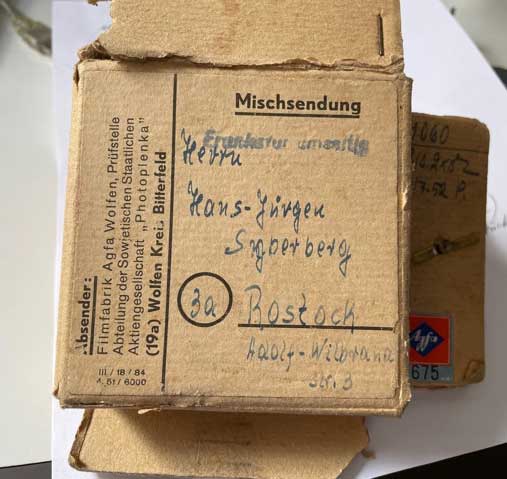 Mischsendung
Herrn
Hans-Jürgen
Syberberg
3a Rostock
Adolf-Wilbrand
Str. 3
Absender:
Filmfabrik Agfa Wolfen, Prüfstelle
Abteilung der Sowjetischen Staatlichen
Aktiengesellschaft „Photoplenka”
(19a) Wolfen Kreis Bitterfeld
III / 18 / 84
A 51 / 6000
1060
Agfa
675